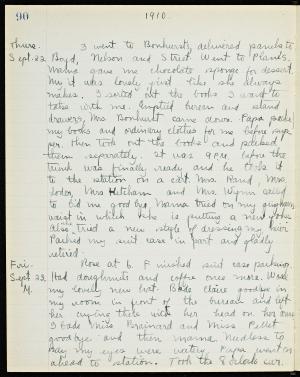 90
1910.
Thurs. I went to Bonhurst's, delivered panels to
Sept. 22. Boyd, Nelson and Street. Went to Plants.
Mama gave me chocolate sponge for dessert.
My it was lovely just like she always
makes. I sorted out the books I want to
take with me. Emptied bureau and stand
drawers, Mrs. Bonhurst came down. Papa packed
my books and ordinary clothes for me before sup-
per. then took out the books and packed
them separately. It was 9 P.M. before the
trunk was finally ready and he took it
to the station on a cart. Mrs. Rand, Mrs.
Mrs. Ketcham and Mrs. Wynn called
to bid me goodbye. Mama tried on my gingham
waist in which she is putting a new yoke
also tried a new style of dressing my hair
Packed my suit case in part and gladly
retired.
Fri. Rose at 6. Finished suit case packing.
Sept. 23. Had doughnuts and coffee once more. Wore
M. my lovely new hat. Bade Claire goodbye in
my room in front of the bureau and left
her crying there with her head on her arms
I bade Miss Brainard and Miss Pellet
goodbye and then mama. Needless to
say my eyes were watery. Papa went on
ahead to station. Took the 8 o'clock car.